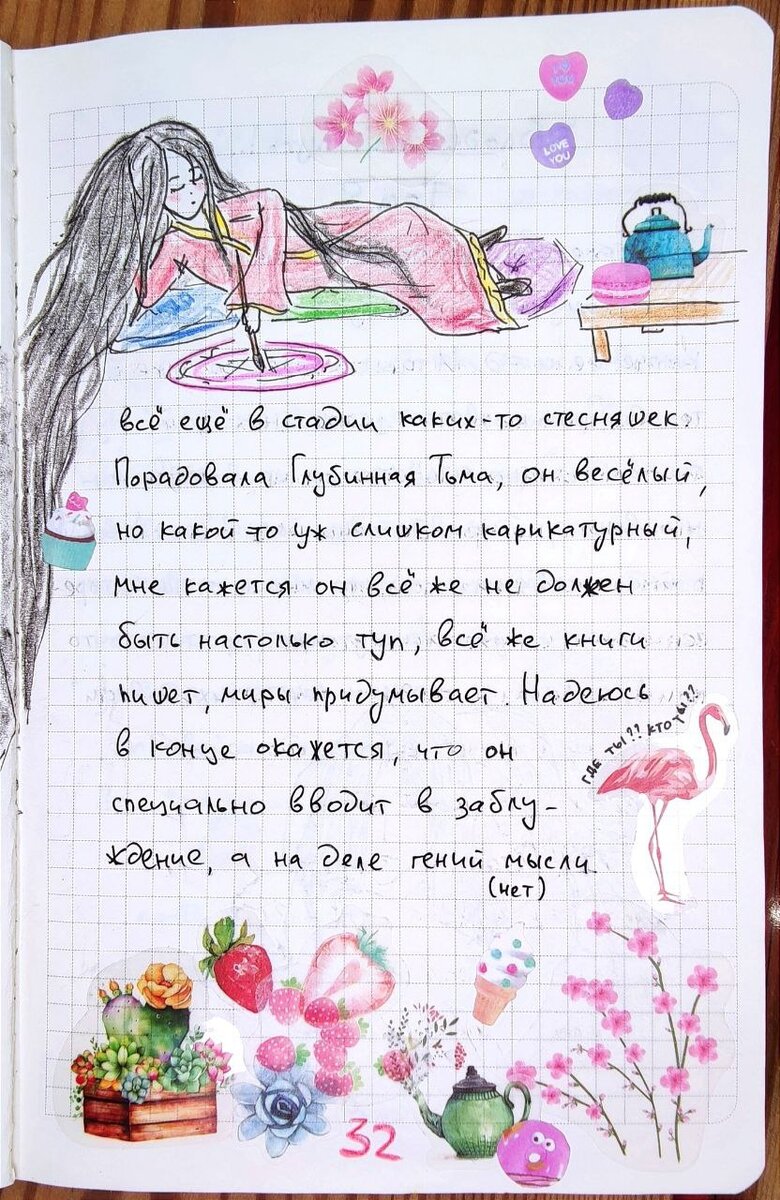 I ♥ YOU
LOVE YOU
всё ещё в стадии каких-то стесняшек.
Порадовала Глубинная Тьма, он весёлый,
но какой-то уж слишком карикатурный,
мне кажется он всё же не должен
быть настолько туп, всё же книги
пишет, миры придумывает. Надеюсь
в конце окажется, что он
специально вводит в заблу-
ждение, а на деле гений мысли
(нет)
ГДЕ ТЫ?? КТО ТЫ??
32